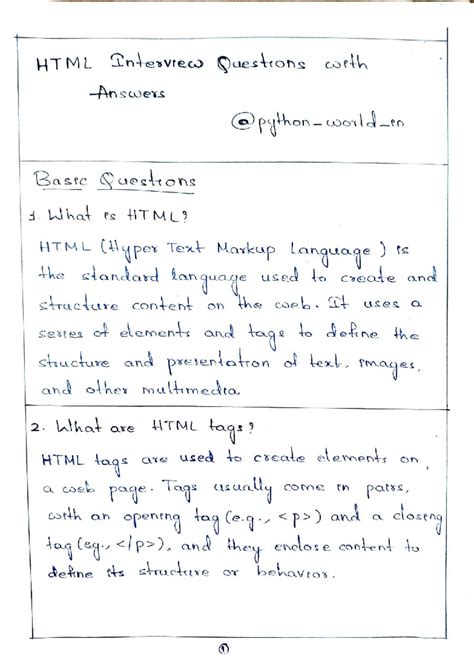 HTML Interview Questions with
Answers
@python_world_in
Basic Questions
1. What is HTML?
HTML (Hyper Text Markup Language) is
the standard language used to create and
structure content on the web. It uses a
series of elements and tags to define the
structure and presentation of text, images,
and other multimedia
2. What are HTML tags?
HTML tags are used to create elements on
a web page. Tags usually come in pairs,
with an opening tag (e.g., <p>) and a closing
tag (eg., </p>), and they enclose content to
define its structure or behavior.
1